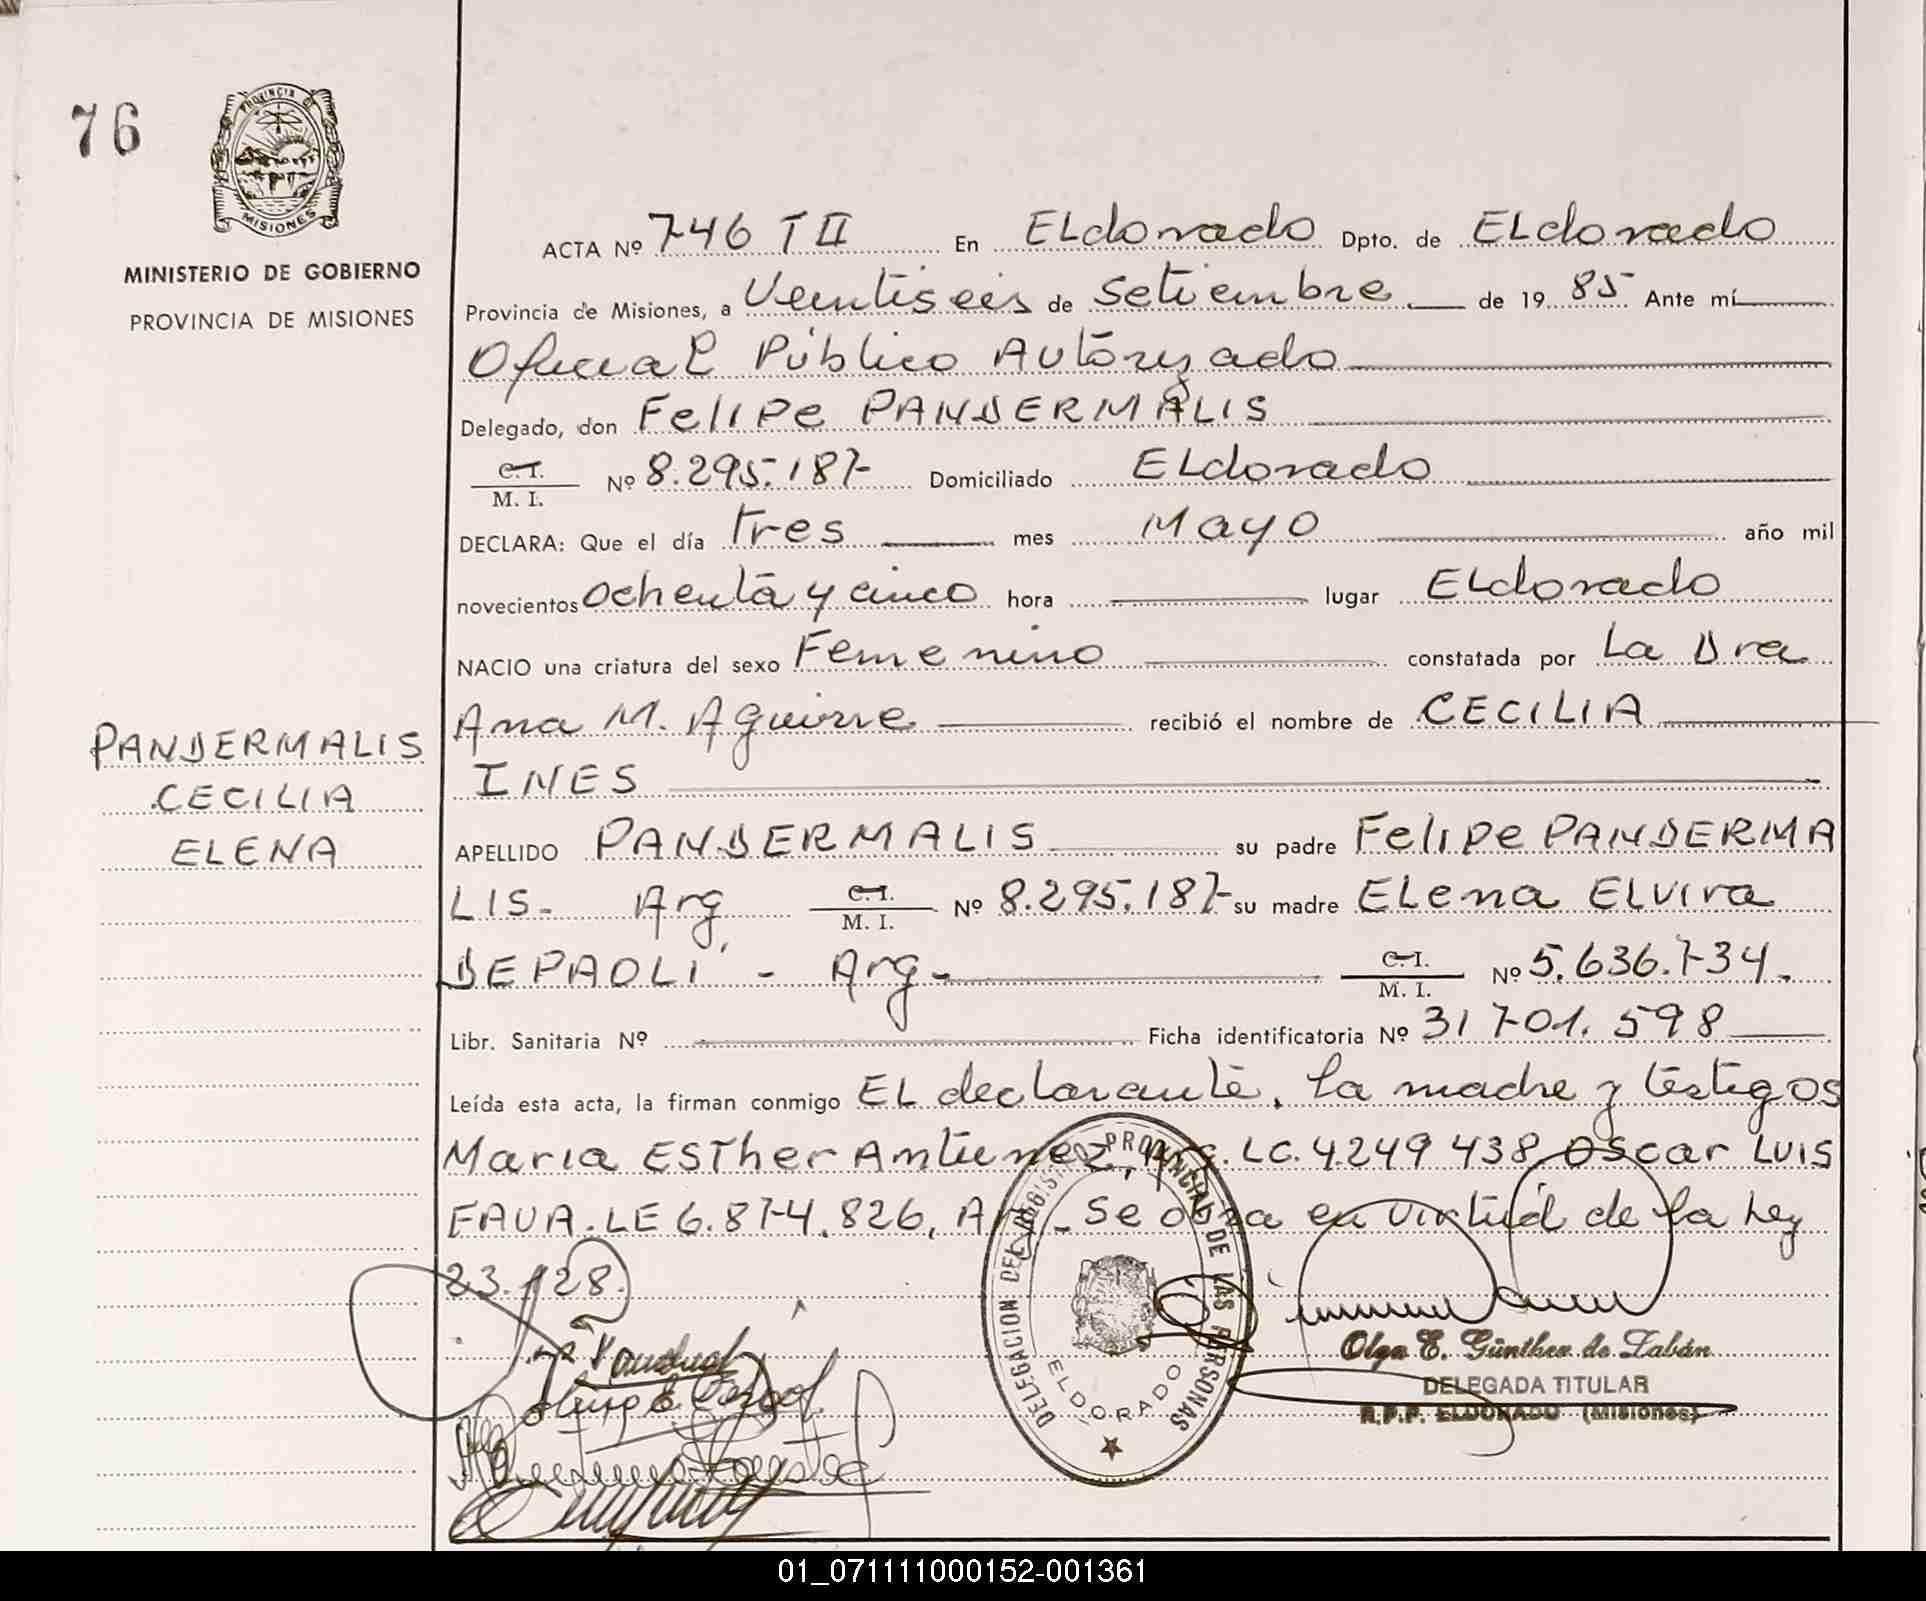 76
PROVINCIA DE
MISIONES
MINISTERIO DE GOBIERNO
PROVINCIA DE MISIONES
ACTA Nº 746 T II En ELdorado Dpto. de ELdorado
Provincia de Misiones, a Veintiseis de Setiembre de 19 85 Ante mí
Oficial Público Autorizado
Delegado, don Felipe PANDERMALIS
C.I. / M. I. Nº 8.295.187 Domiciliado ELdorado
DECLARA: Que el día Tres mes Mayo año mil
novecientos ochenta y cinco hora lugar ELdorado
NACIO una criatura del sexo Femenino constatada por La Dra
Ana M. Aguirre recibió el nombre de CECILIA
INES
PANDERMALIS
CECILIA
ELENA
APELLIDO PANDERMALIS su padre Felipe PANDERMA
LIS- Arg C.I. / M. I. Nº 8.295.187 su madre ELena ELvira
DEPAOLI - Arg- C.I. / M. I. Nº 5.636.734.
Libr. Sanitaria Nº Ficha identificatoria Nº 31701.598
Leída esta acta, la firman conmigo EL declarante, la madre y testigos
Maria ESTher Antunez, Arg. LC. 4.249 438 Oscar LUIS
FAVA. LE 6.874.826, Arg - Se obra en virtud de la Ley
23.128.
DELEGACION DEL REGISTRO PROVINCIAL DE LAS PERSONAS
ELDORADO
Olga E. Günther de Zabán
DELEGADA TITULAR
R.P.P. ELDORADO (Misiones)
01_071111000152-001361